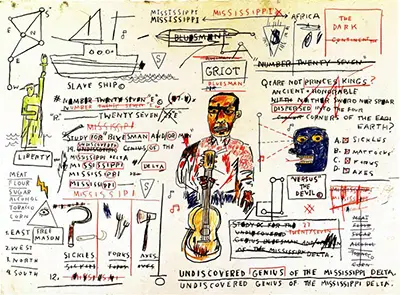 MISSISSIPPI
MISSISSIPPI
MISSISSIPPI
AFRICA
THE
DARK
CONTINENT
E
S
N
BLUESMAN
NUMBER TWENTY SEVEN
GRIOT
BLUESMAN
SLAVE SHIP©
S
Q: ARE NOT PRINCES KINGS?
ANCIENT + HONORABLE
NEITHER SWORD NOR SPEAR
DISPERSED INTO THE FOUR
CORNERS OF THE EARTH?
NUMBER TWENTY SEVEN
"R." TWENTY SEVEN
MISSISSIPPI
STUDY FOR BLUESMAN AND/OR MAN
UNDISCOVERED GENIUS OF THE
MISSISSIPPI DELTA
MISSISSIPPI DELTA
MISSISSIPPI
MISSISSIPPI
MISSISSIPPI
S
LIBERTY
A. SICKLES
B. MATTOCKS
C. FORKS
D. AXES
"VERSUS" THE
DEVIL
MEAT
FLOUR
SUGAR
ALCOHOL
TOBACCO
CORN
1. EAST
FREE
MASON
2. WEST
3. NORTH
4. SOUTH
SICKLES
FORKS
AXES
12. MISSISSIPPI
TWENTYSEVEN
STUDY OF THE
UNDISCOVERED
GENIUS BLUESMAN
OF THE MISSISSIPPI DELTA.
MEAT
FLOUR
SUGAR
ALCOHOL
TOBACCO
CORN
UNDISCOVERED GENIUS OF THE MISSISSIPPI DELTA.
UNDISCOVERED GENIUS OF THE MISSISSIPPI DELTA.